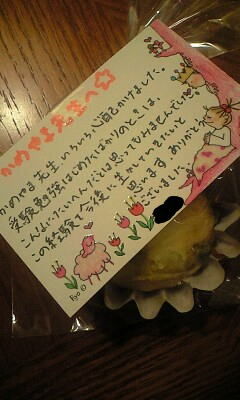 かめやま先生へ☆
かめやま先生、いろいろ心配かけました。
受験勉強はじめたばかりのときは、
こんなにたいへんだとは思ってもみませんでした。
この経験を今後に生かしていきたいと
思います。ありがとう
ございました。